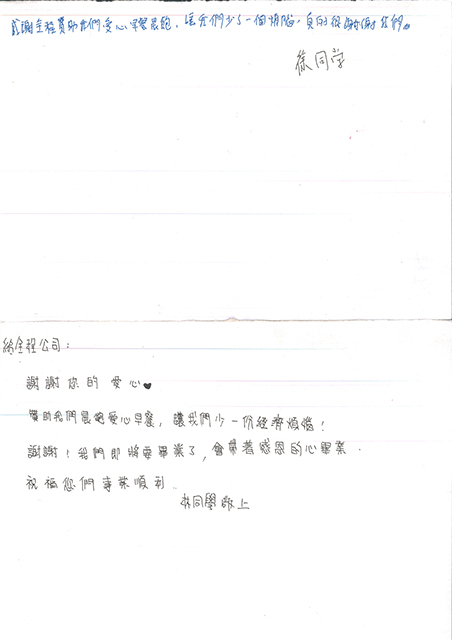 感謝全程贊助我們愛心早餐晨飽,讓我們少了一個煩惱,真的很謝謝你們。
徐同学
給全程公司:
謝謝你的愛心♥
贊助我們晨飽愛心早餐,讓我們少一份經濟煩惱!
謝謝!我們即將要畢業了,會帶著感恩的心畢業.
祝福您們事業順利.
林同學敬上